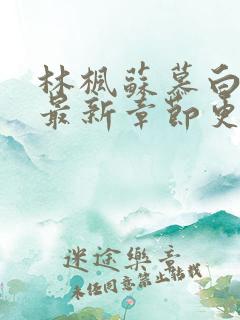 林楓蘇慕白
最新章節更
迷途樂章
未經同意禁止轉載